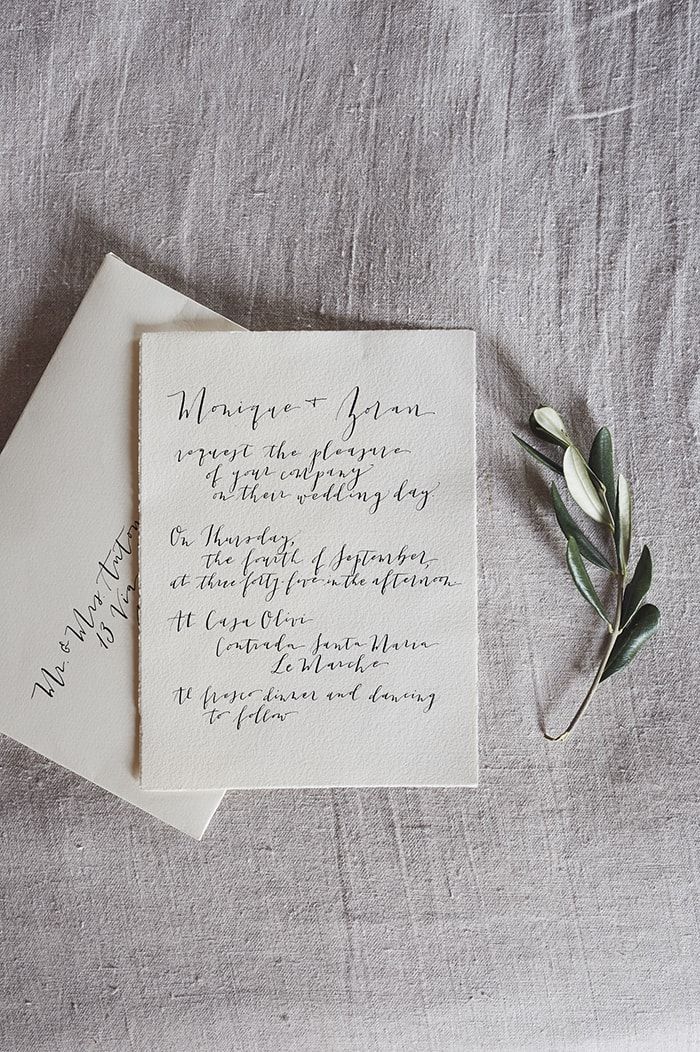 Monique + Zoran
request the pleasure
of your company
on their wedding day
On Thursday,
the fourth of September,
at three forty five in the afternoon
At Casa Olivi
Contrada Santa Maria
Le Marche
Al fresco dinner and dancing
to follow
Mr. & Mrs. Anton
13 Via